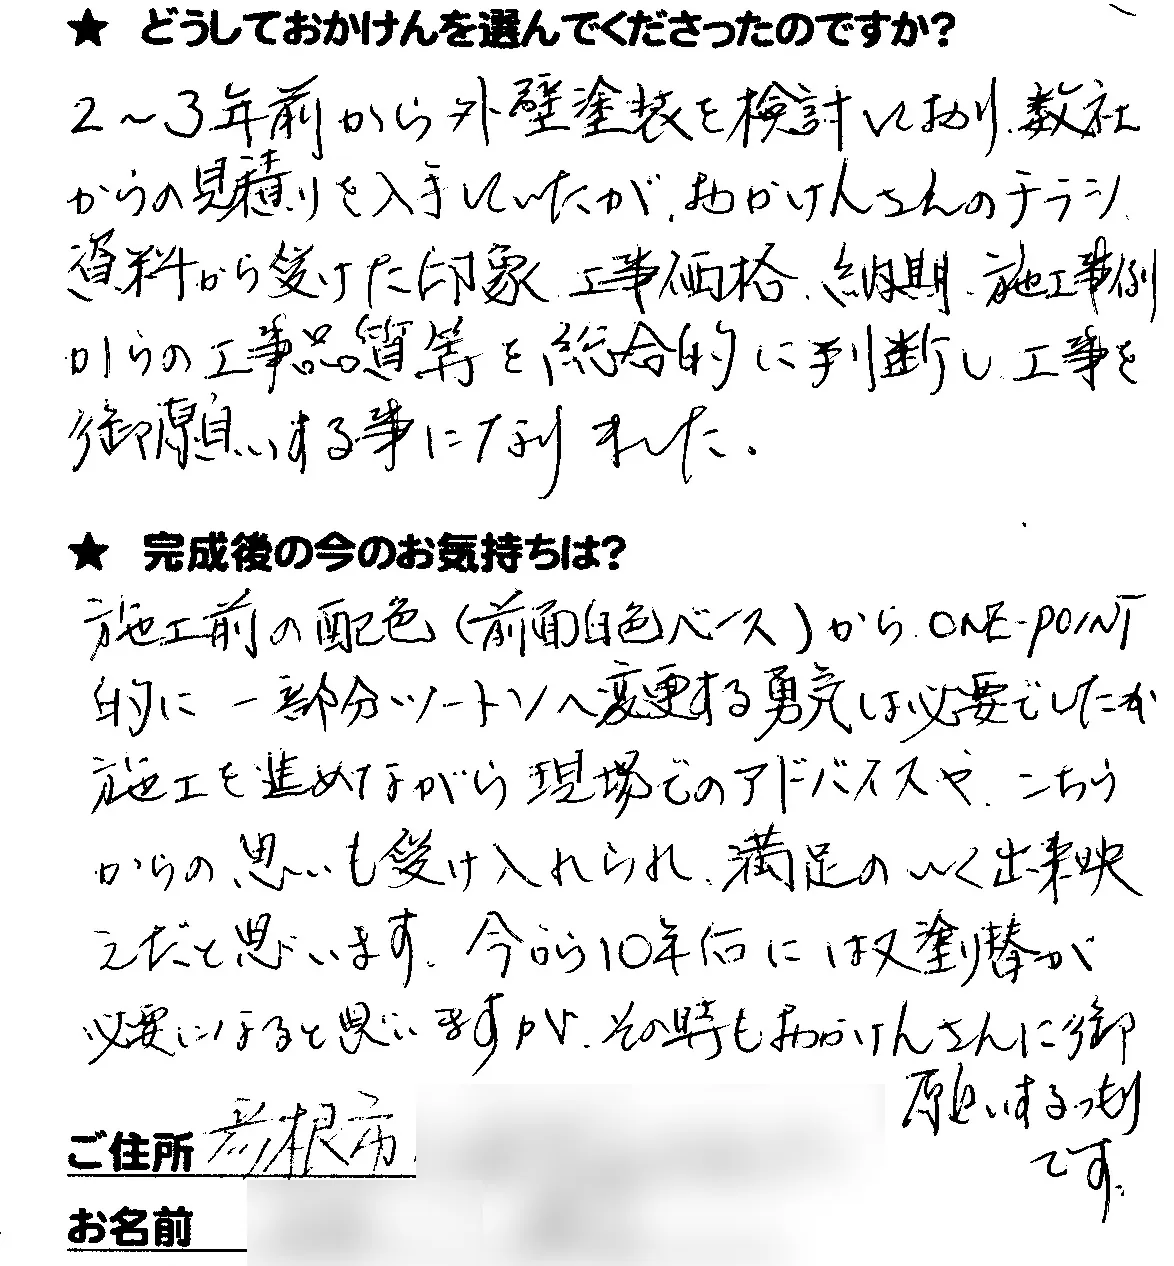 ★ どうしておかけんを選んでくださったのですか?
2〜3年前から外壁塗装を検討しており、数社
からの見積りを入手していたが、おかけんさんのチラシ、
資料から受けた印象、工事価格、納期、施工事例
からの工事品質等を総合的に判断し、工事を
御願いする事になりました。
★ 完成後の今のお気持ちは?
施工前の配色(前面白色ベース)から、ONE-POINT
的に一部分ツートンへ変更する勇気は必要でしたが
施工を進めながら現場でのアドバイスや、こちら
からの思いも受け入れられ、満足のいく出来映
えだと思います。今から10年后には又塗り替が
必要になると思いますが、その時もおかけんさんに御
願いするつもり
です。
ご住所 彦根市
お名前